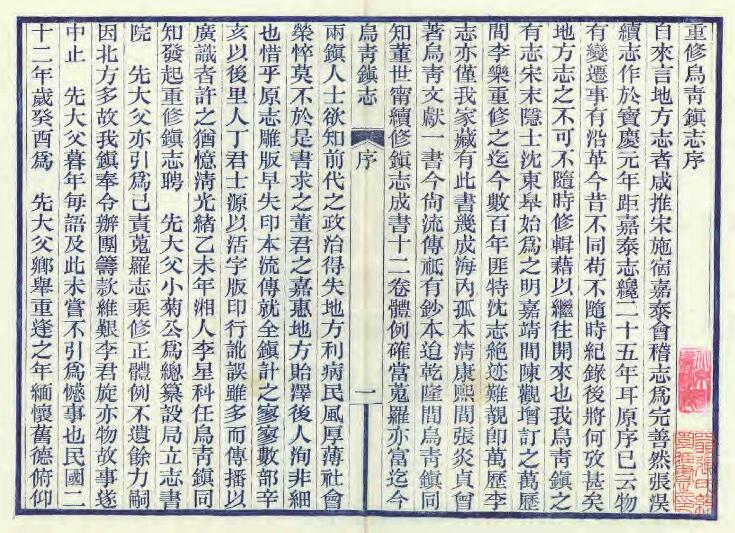 重修烏青鎮志序
自來言地方志者咸推宋施宿嘉泰會稽志爲完善然張淏
續志作於寶慶元年距嘉泰志纔二十五年耳原序已云物
有變遷事有沿革今昔不同苟不隨時紀錄後將何攷甚矣
地方志之不可不隨時修輯藉以繼往開來也我烏青鎮之
有志宋末隱士沈東皋始爲之明嘉靖間陳觀增訂之萬歷
間李樂重修之迄今數百年匪特沈志絕迹難靚卽萬歷李
志亦僅我家藏有此書幾成海內孤本清康熙間張炎貞曾
著烏青文獻一書今尙流傳祇有鈔本迨乾隆間烏青鎮同
知董世甯續修鎮志成書十二卷體例確當蒐羅亦富迄今
烏青鎮志 序 一
兩鎮人士欲知前代之政治得失地方利病民風厚薄社會
榮悴莫不於是書求之董君之嘉惠地方貽澤後人洵非細
也惜乎原志雕版早失印本流傳就全鎮計之寥寥數部辛
亥以後里人丁君士源以活字版印行訛誤雖多而傳播以
廣識者許之猶憶清光緖乙未年湘人李星科任烏青鎮同
知發起重修鎮志聘 先大父小菊公爲總纂設局立志書
院 先大父亦引爲己責蒐羅志乘修正體例不遺餘力嗣
因北方多故我鎮奉令辦團籌款維艱李君旋亦物故事遂
中止 先大父暮年每語及此未嘗不引爲憾事也民國二
十二年歲癸酉爲 先大父鄉舉重逢之年緬懷舊德俯仰